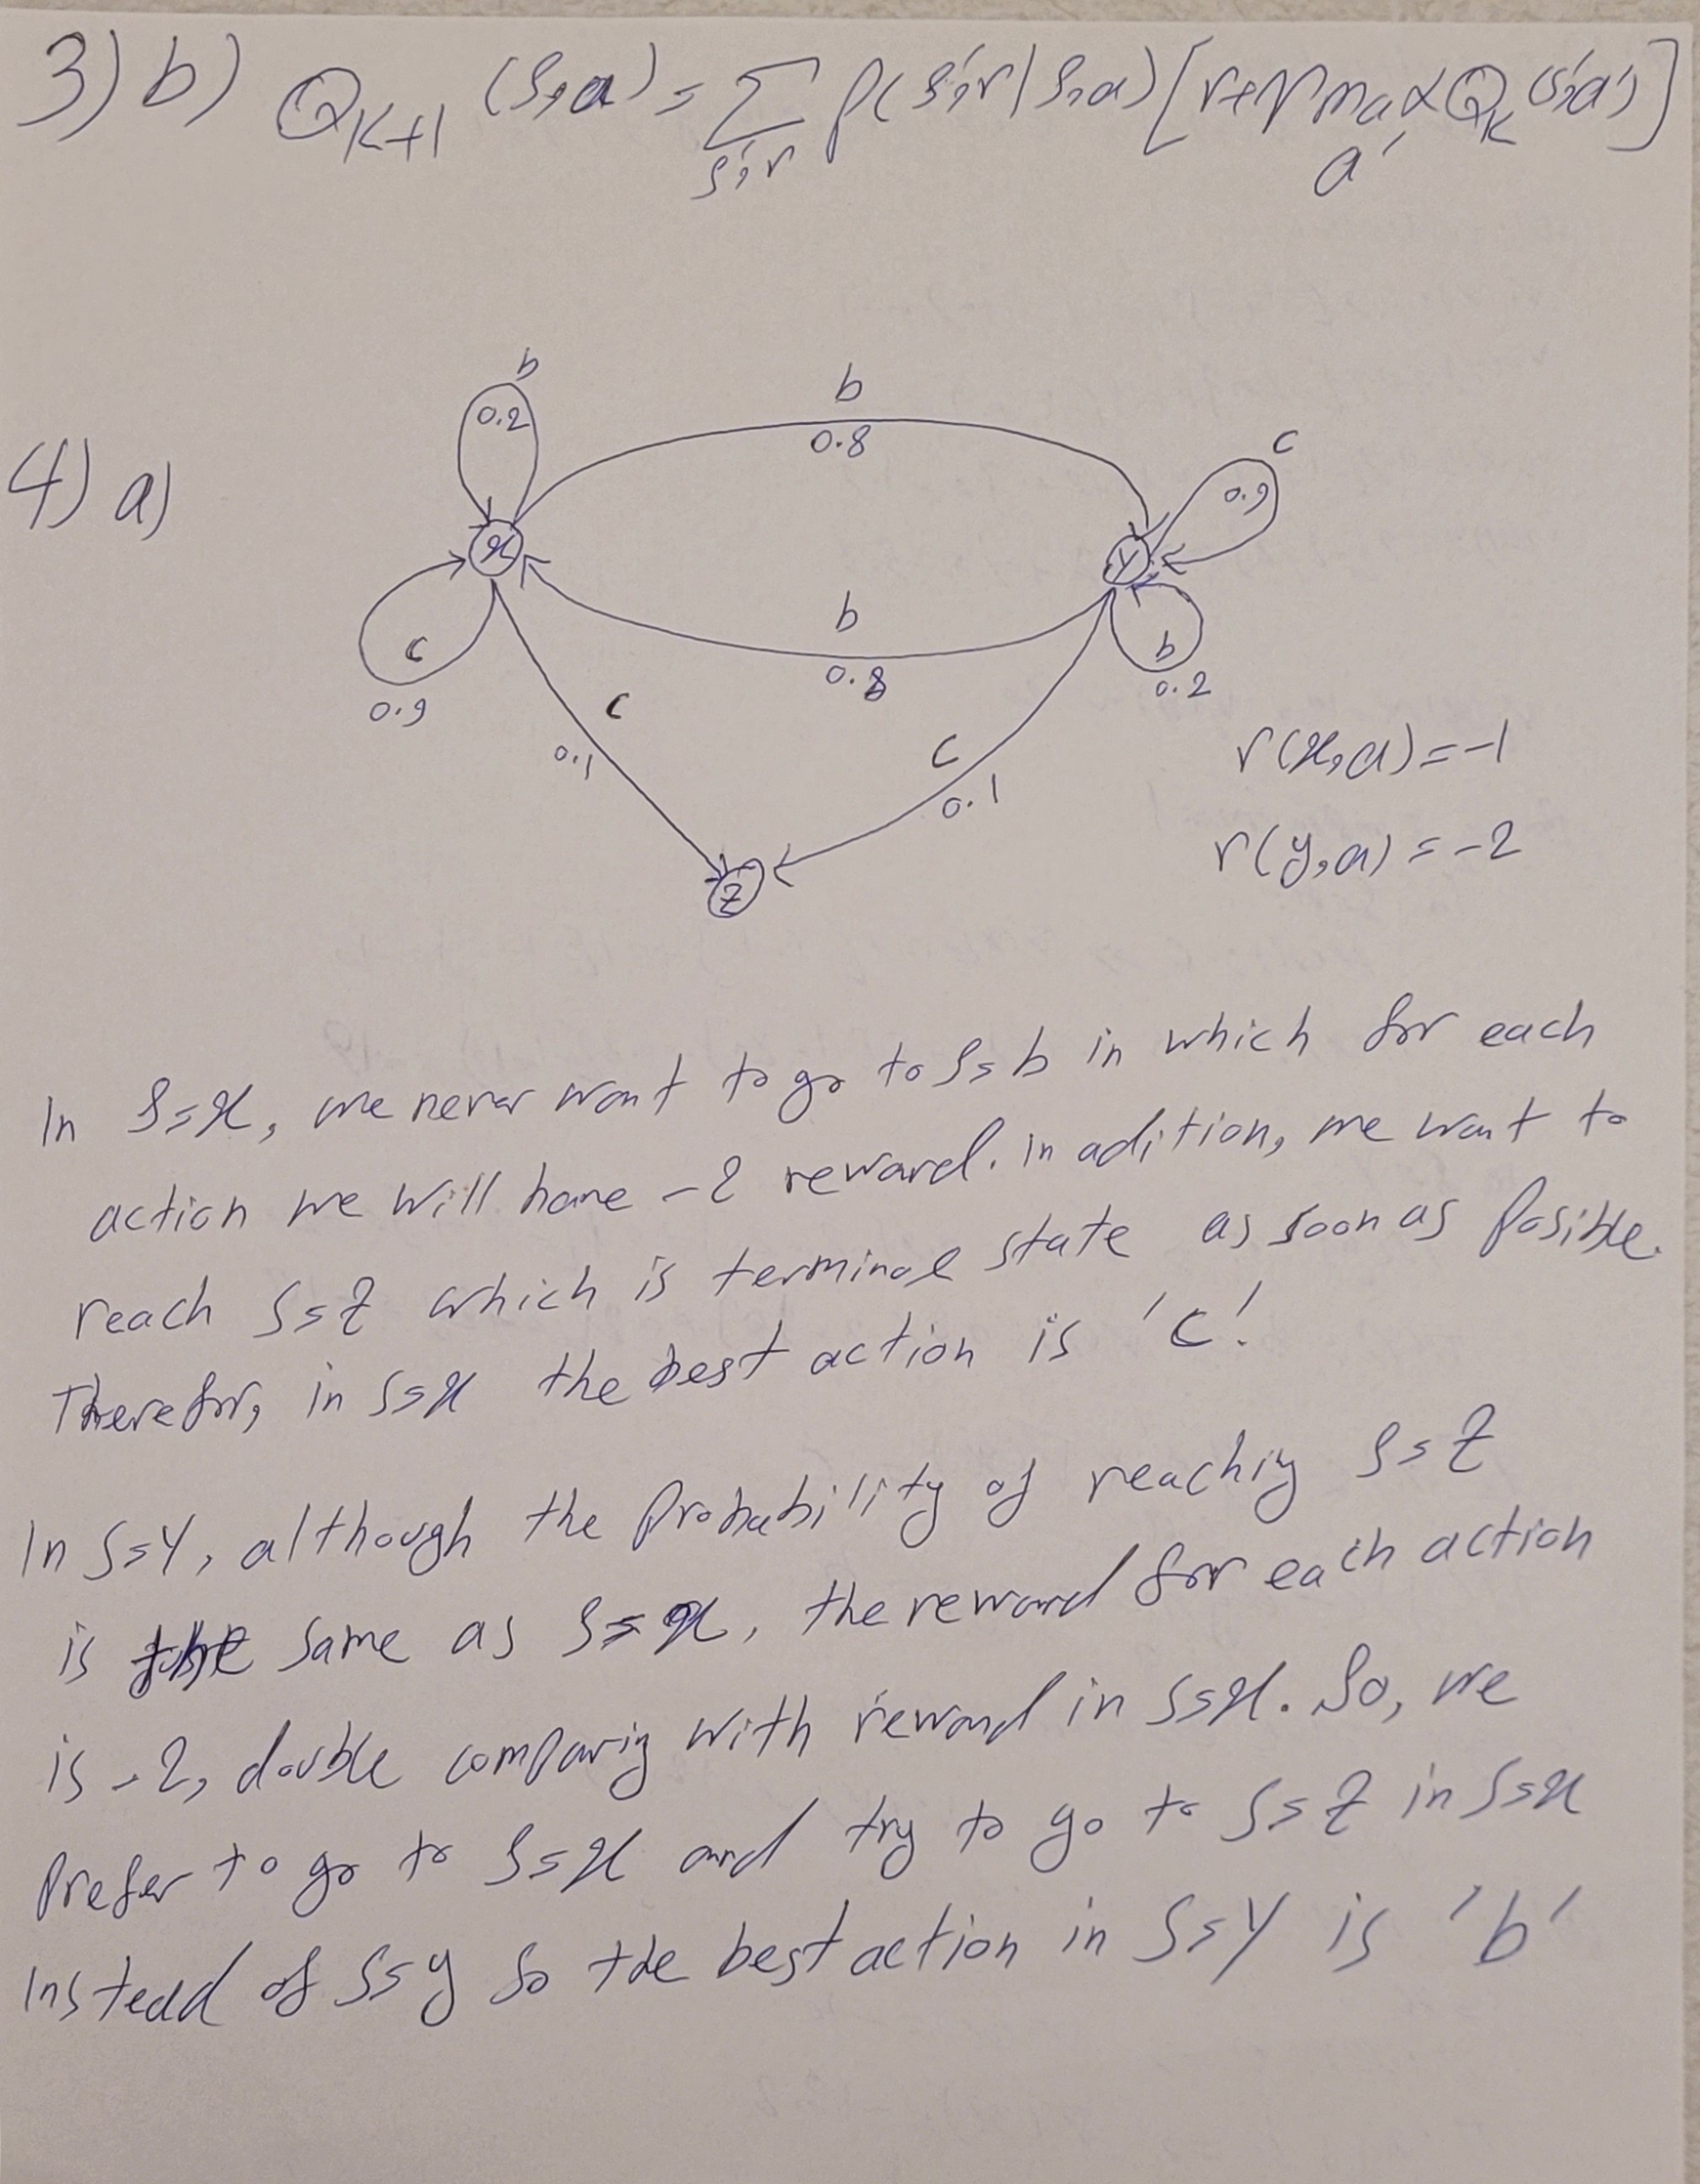 3) b) Q_{k+1} (s,a) = Σ_{s',r} p(s',r|s,a) [r+γ max_{a'} Q_k (s',a')]
4) a)
b
0.2
b
0.8
c
0.9
x
y
b
0.8
b
0.2
c
0.9
c
0.1
c
0.1
z
r(x,a) = -1
r(y,a) = -2
In S=x, we never want to go to S=b in which for each
action we will have -2 reward. in adition, we want to
reach S=Z which is terminal state as soon as posible.
Therefor, in S=x the best action is 'c'.
In S=Y, although the probability of reachig S=Z
is the same as S=x, the reward for each action
is -2, double comparig with reward in S=x. So, we
prefer to go to S=x and try to go to S=Z in S=x
instead of S=y so the best action in S=Y is 'b'